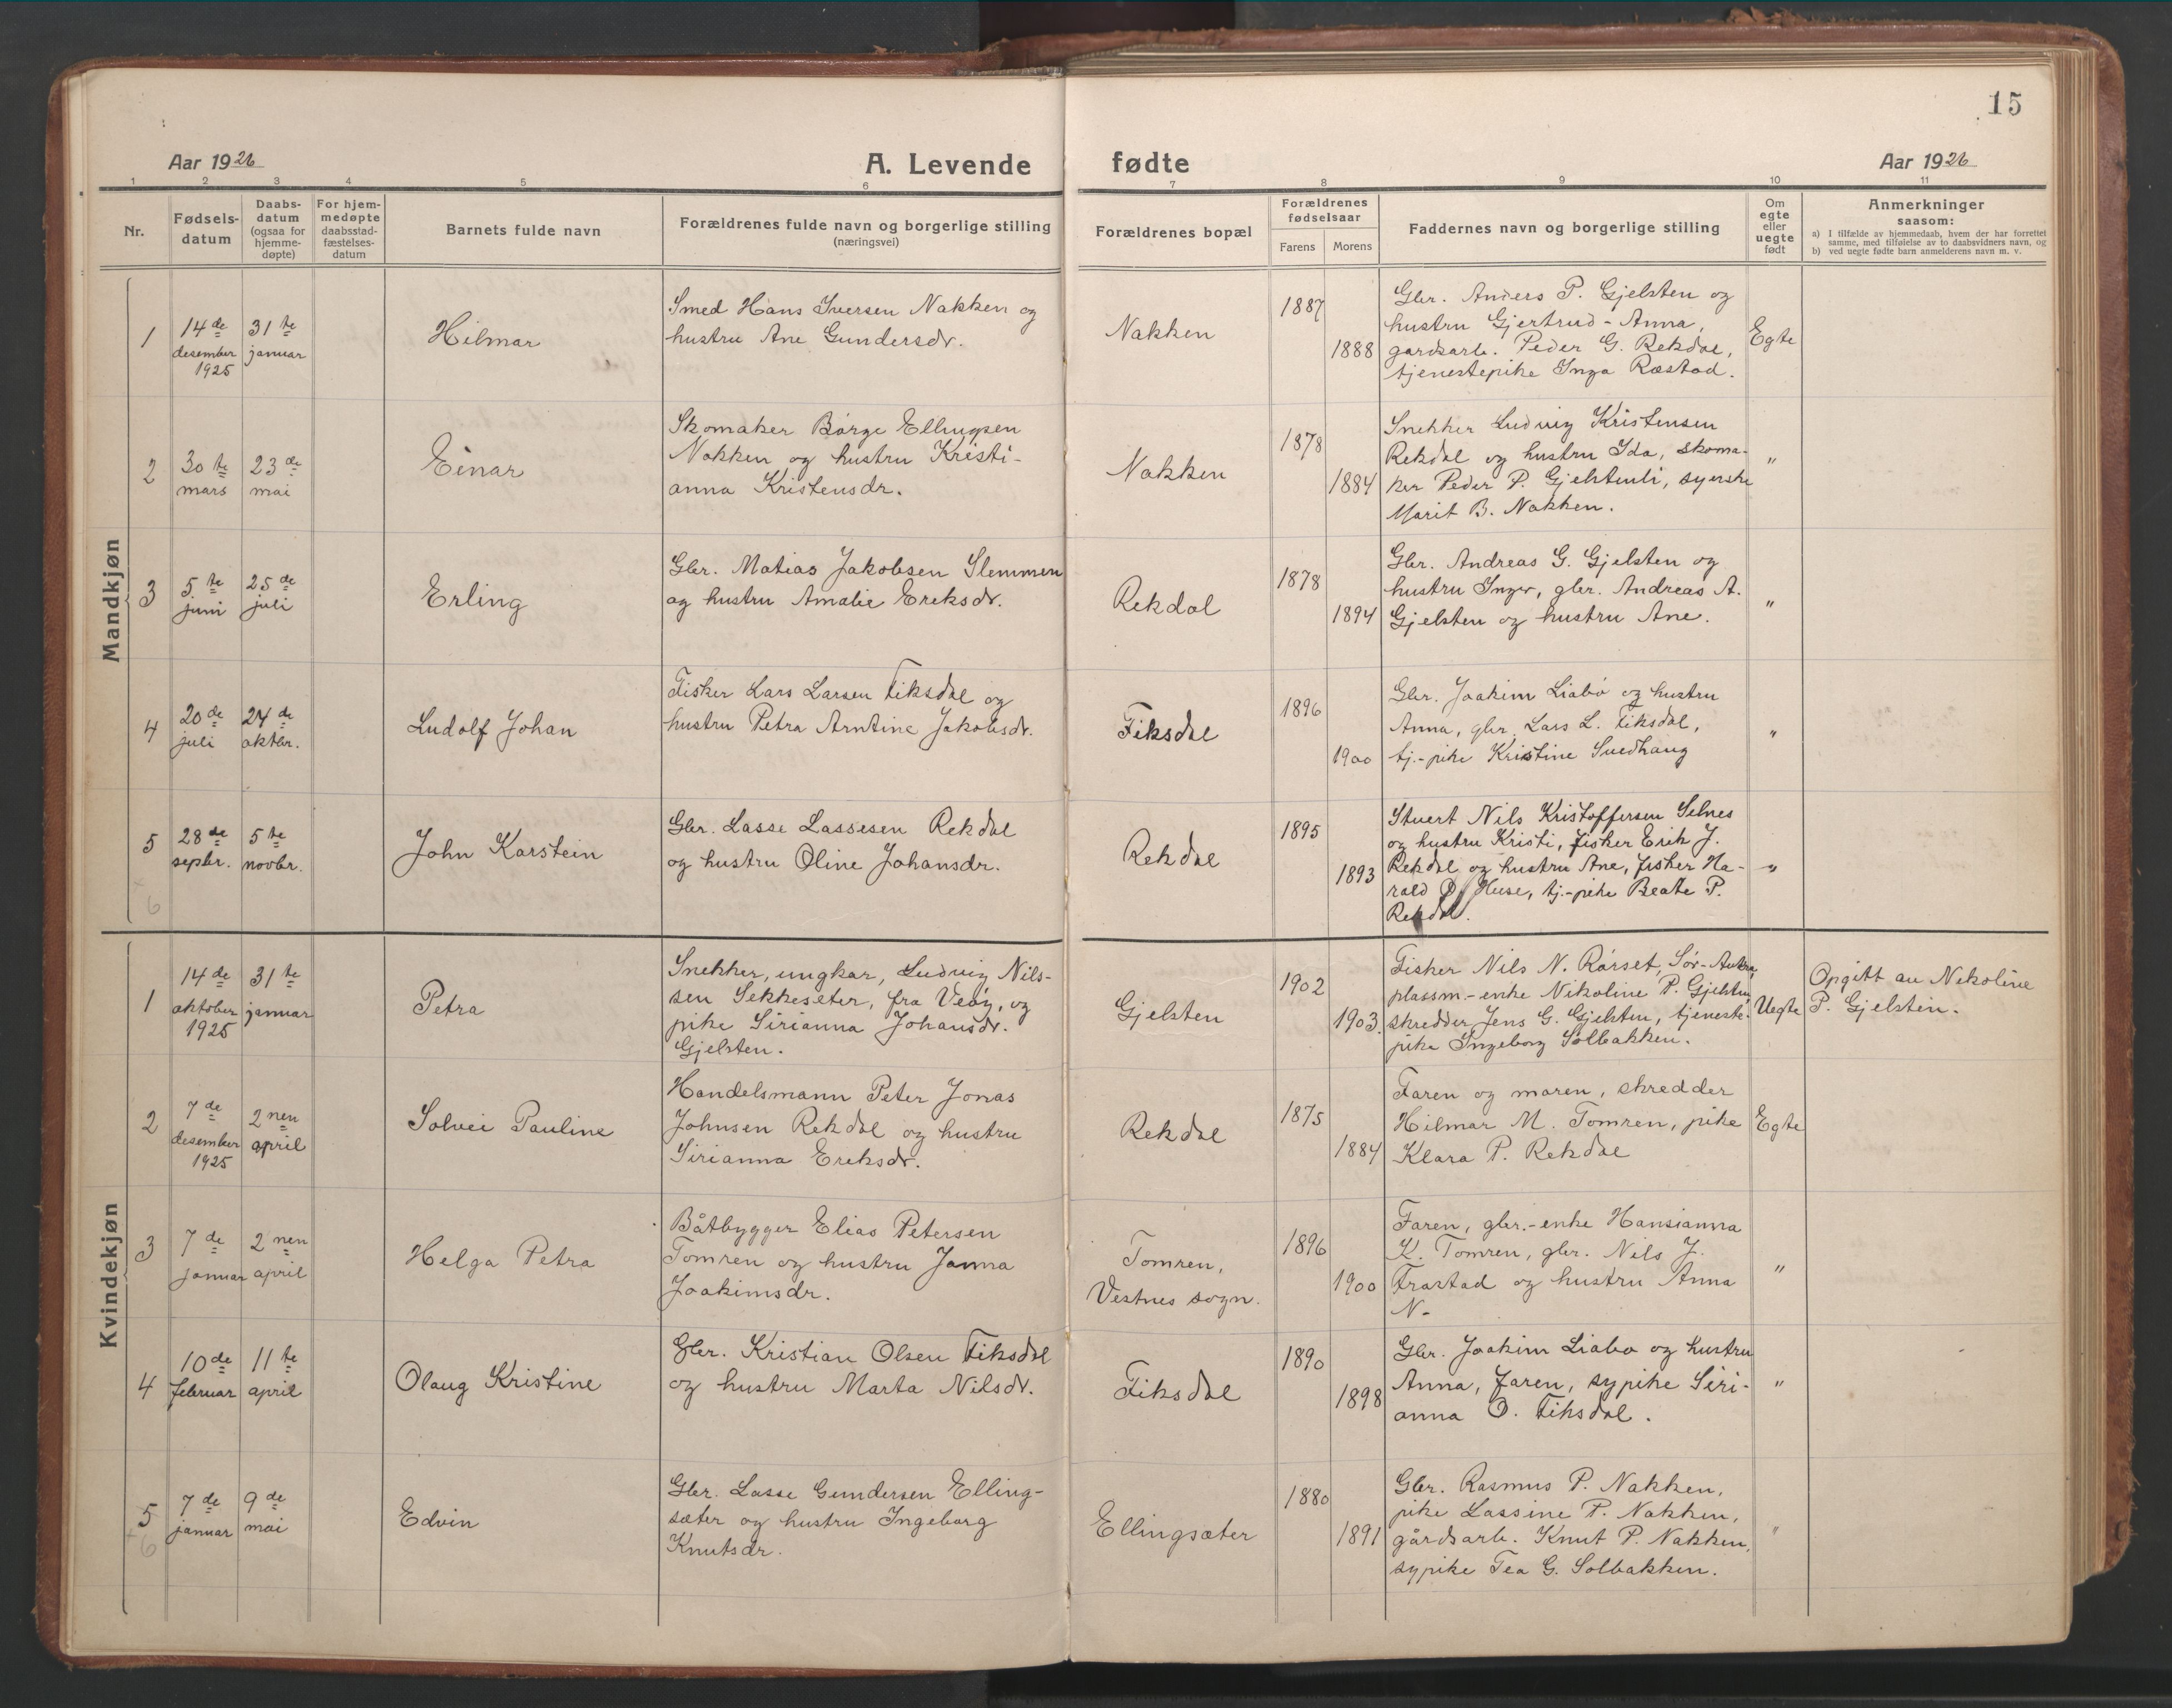 15
Aar 1926
A. Levende fødte
Aar 1926
1 2 3 4 5 6 7 8 9 10 11
Nr.
Fødsels-
datum
Daabs-
datum
(ogsaa for
hjemme-
døpte)
For hjem-
medøpte
daabsstad-
fæstelses-
datum
Barnets fulde navn
Forældrenes fulde navn og borgerlige stilling
(næringsvei)
Forældrenes bopæl
Forældrenes
fødselsaar
Farens Morens
Faddernes navn og borgerlige stilling
Om
egte
eller
uegte
født
Anmerkninger
saasom:
a) I tilfælde av hjemmedaab, hvem der har forrettet
samme, med tilføielse av to daabsvidners navn, og
b) ved uegte fødte barn anmelderens navn m. v.
Mandkjøn
1
14de
desember
1925
31te
januar
Hilmar
Smed Hans Iversen Nakken og
hustru Ane Gundersdr.
Nakken
1887
1888
Gbr. Anders P. Gjelsten og
hustru Gjertrud-Anna,
gardsarb. Peder G. Rekdal,
tjenestepike Inga Ræstad.
Egte
2
30te
mars
23de
mai
Einar
Skomaker Børge Ellingsen
Nakken og hustru Kristi-
anna Kristensdr.
Nakken
1878
1884
Snekker Ludvig Kristensen
Rekdal og hustru Ida, skoma-
ker Peder P. Gjelstenli, syerske
Marit B. Nakken.
"
3
5.te
juni
25de
juli
Erling
Gbr. Matias Jakobsen Slemmen
og hustru Amalie Ereksdr.
Rekdal
1878
1894
Gbr. Andreas G. Gjelsten og
hustru Inger, gbr. Andreas A.
Gjelsten og hustru Ane.
"
4
20de
juli
24de
oktbr.
Ludolf Johan
Fisker Lars Larsen Fiksdal og
hustru Petra Arntine Jakobsdr.
Fiksdal
1896
1900
Gbr. Joakim Liabø og hustru
Anna, gbr. Lars L. Fiksdal,
tj.-pike Kristine Svedhaug
"
5
28de
septbr.
5te
novbr.
John Karstein
Gbr. Lasse Lassesen Rekdal
og hustru Oline Johansdr.
Rekdal
1895
1893
Stuert Nils Kristoffersen Selnes
og hustru Kristi, fisker Erik J.
Rekdal og hustru Ane, fisker Ha-
rald O. Huse, tj.-pike Beate P.
Rekdal.
"
+
6
Kvindekjøn
1
14de
oktober
1925
31te
januar
Petra
Snekker, ungkar, Ludvig Nils-
sen Sekkeseter, fra Veøy, og
pike Sirianna Johansdr.
Gjelsten.
Gjelsten
1902
1903.
Fisker Nils N. Rørset, Sør-Aukra,
plassm.-enke Nikoline P. Gjelsten,
skredder Jens G. Gjelsten, tjeneste-
pike Ingeborg Solbakken.
Uegte
Opgitt av Nekoline
P. Gjelsten.
2
7de
desember
1925
2nen
april
Solvei Pauline
Handelsmann Peter Jonas
Johnsen Rekdal og hustru
Sirianna Ereksdr.
Rekdal
1875
1884
Faren og moren, skredder
Hilmar M. Tomren, pike
Klara P. Rekdal
Egte
3
7de
januar
2nen
april
Helga Petra
Båtbygger Elias Petersen
Tomren og hustru Janna
Joakimsdr.
Tomren,
Vestnes sogn.
1896
1900
Faren, gbr.-enke Hansianna
K. Tomren, gbr. Nils J.
Frastad og hustru Anna
N-
"
4
10de
februar
11te
april
Olaug Kristine
Gbr. Kristian Olsen Fiksdal
og hustru Marta Nilsdr.
Fiksdal
1890
1898
Gbr. Joakim Liabø og hustru
Anna, faren, sypike Siri-
anna O. Fiksdal.
"
5
7de
januar
9de
mai
Edvin
Gbr. Lasse Gundersen Elling-
sæter og hustru Ingeborg
Knutsdr.
Ellingsæter
1880
1891
Gbr. Rasmus P. Nakken,
pike Lassine P. Nakken,
gårdsarb. Knut P. Nakken,
sypike Tea G. Solbakken.
"
+
6